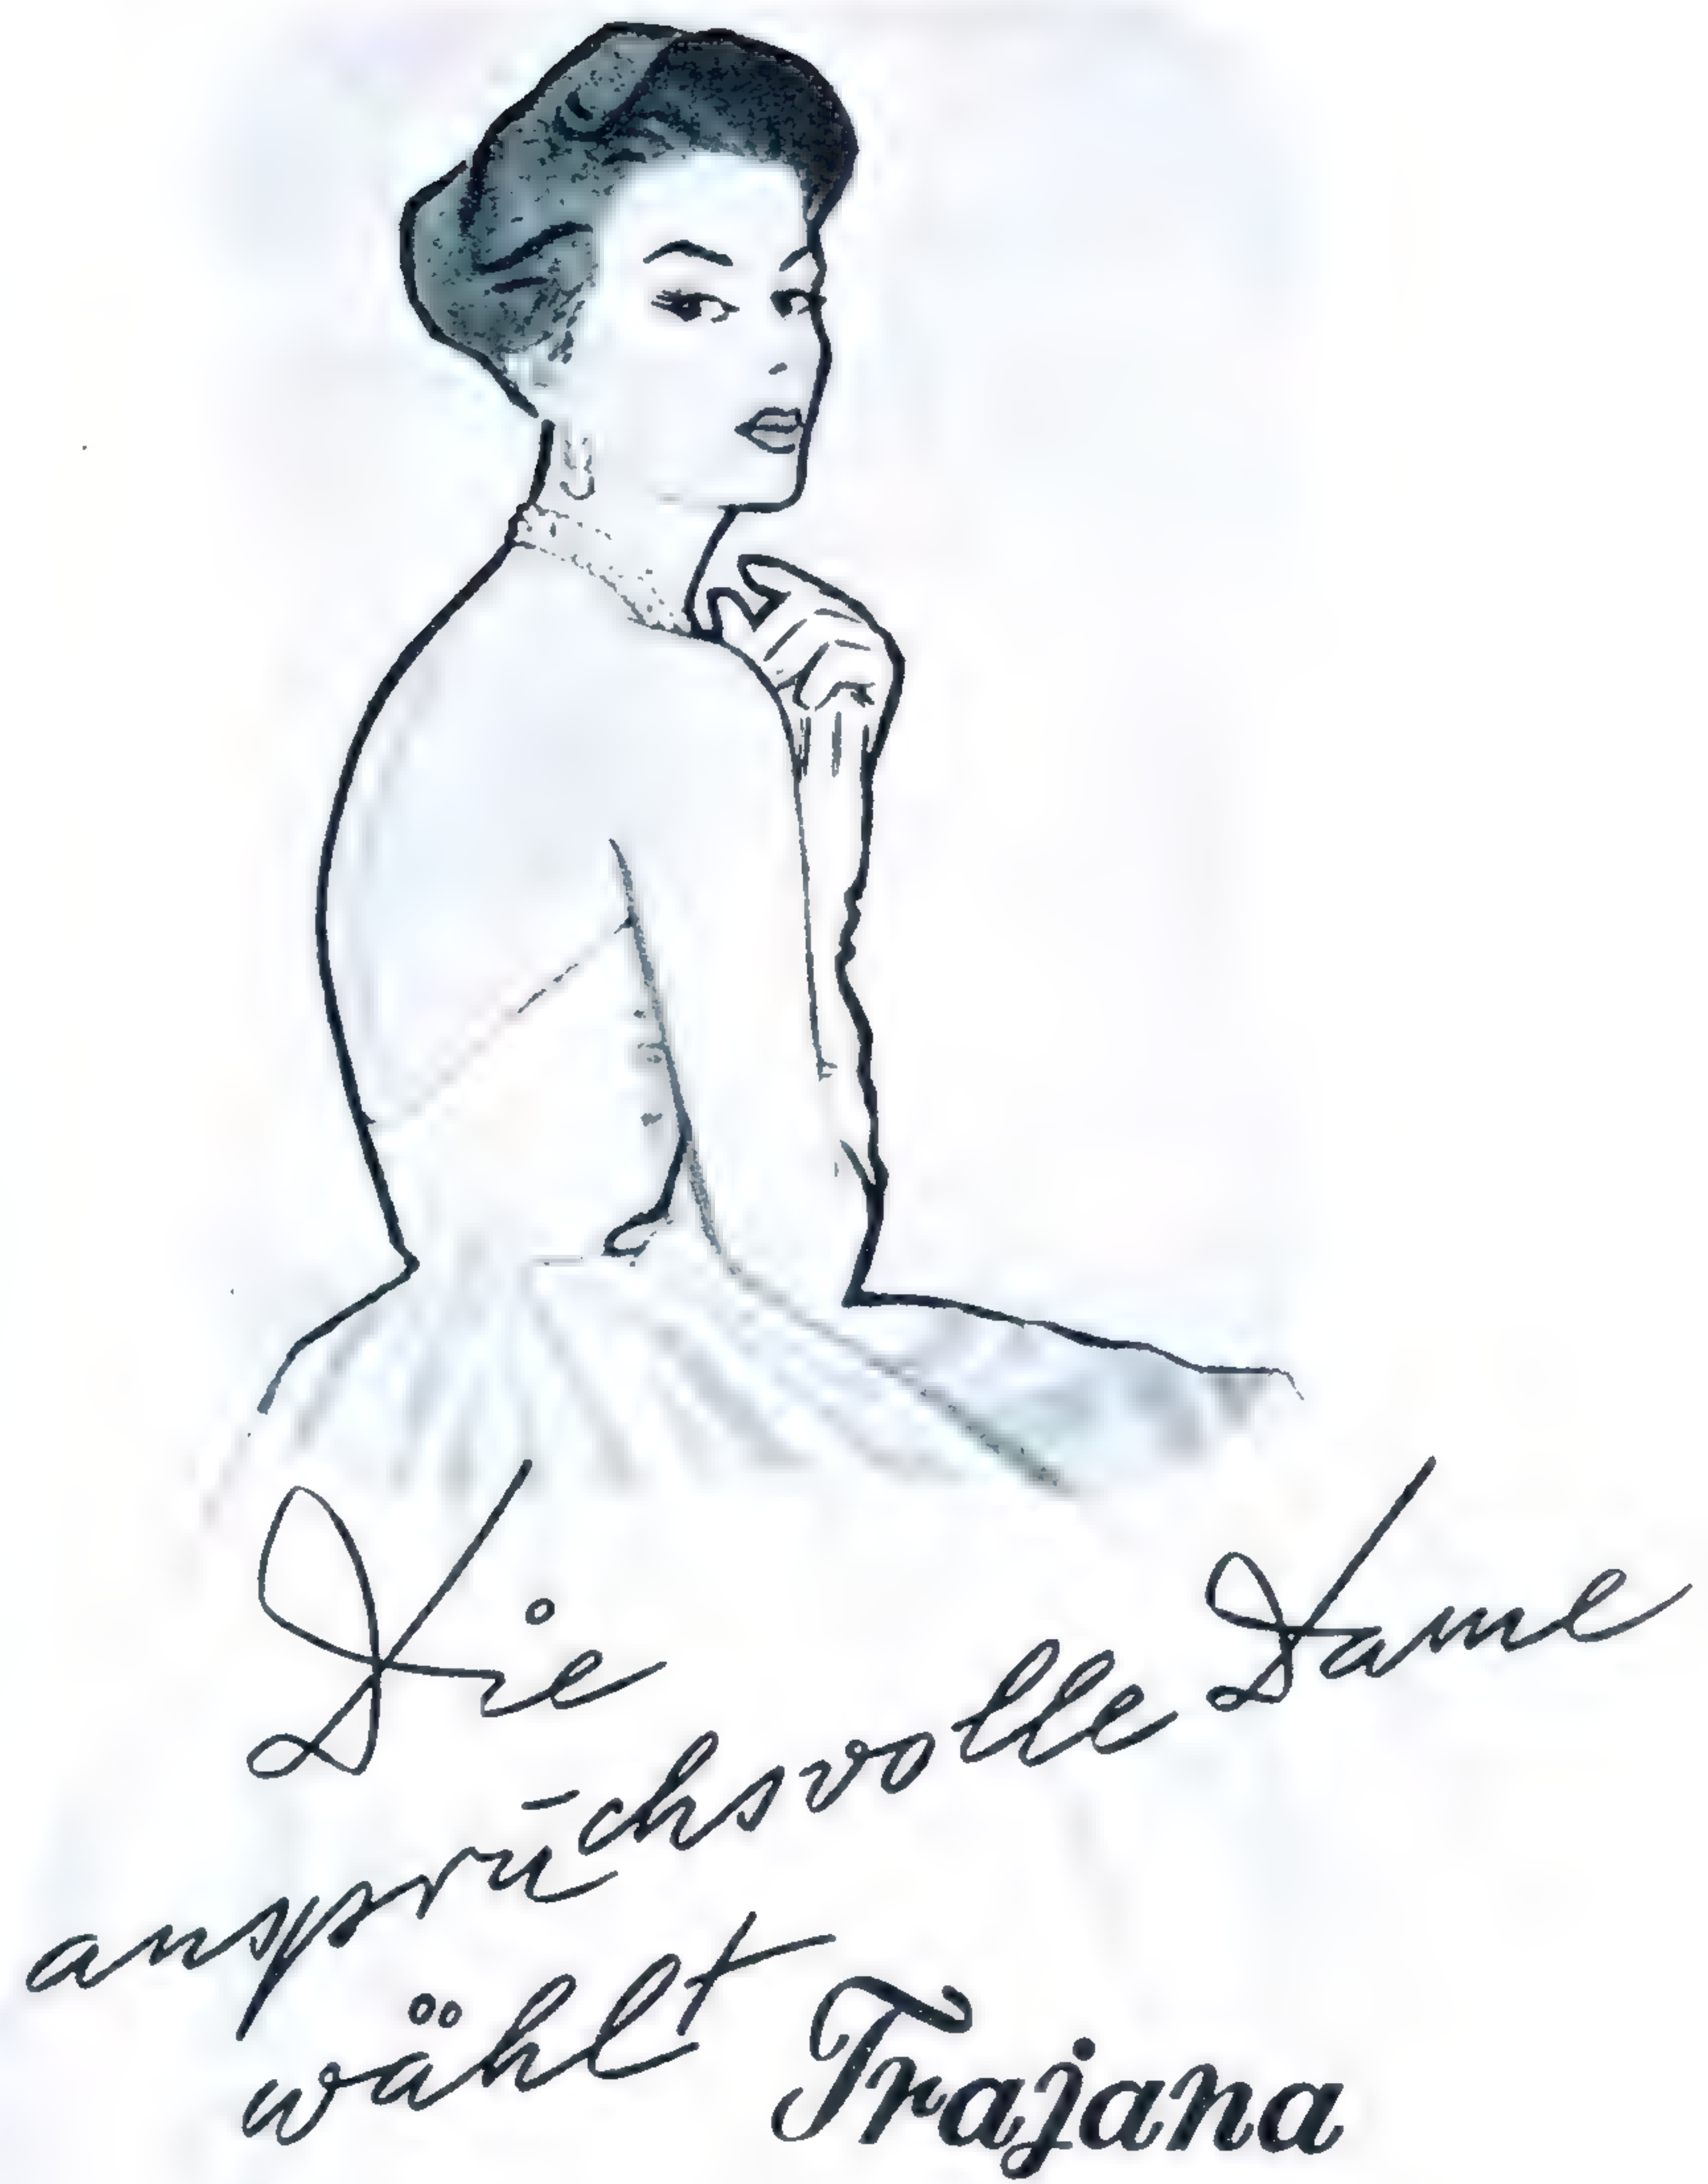 Die
anspruchsvolle Dame
wählt Trajana